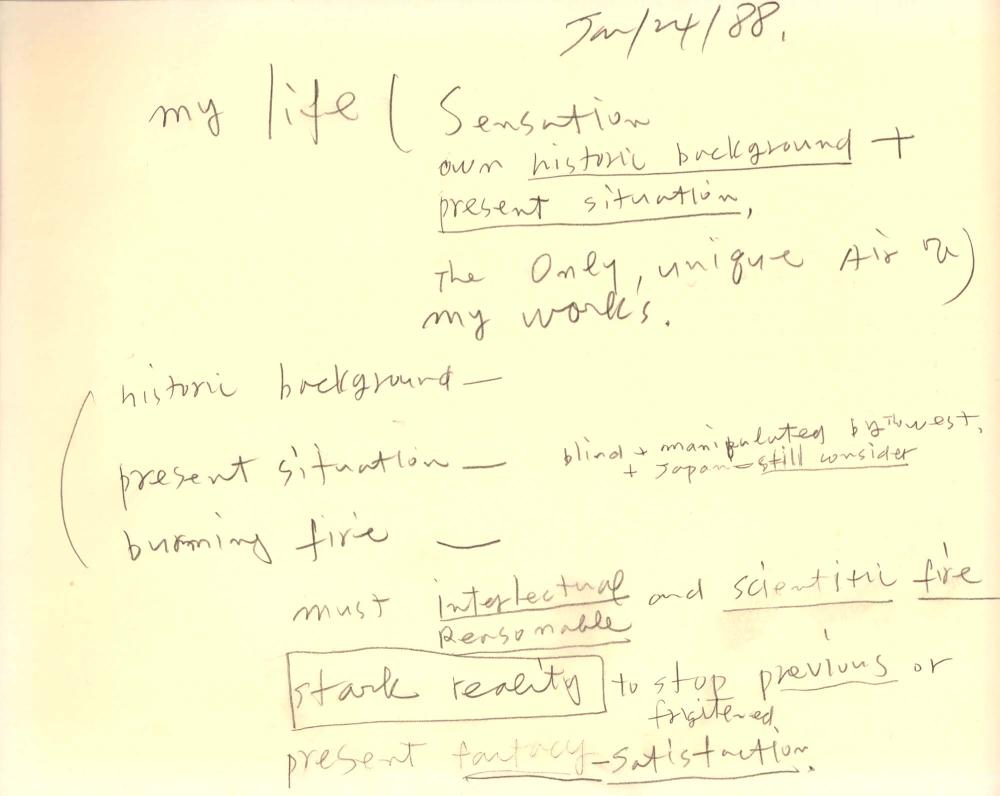 Jan/24/88.
my life ( Sensation
own historic background +
present situation,
The Only, unique Air
my works. )
( historic background —
present situation — blind + manipulated by The west,
+ Japan - still consider
burning fire —
must interlectual and scientific fire
Reasonable
stark reality to stop previous or
frigitened
present fantacy - satisfaction.